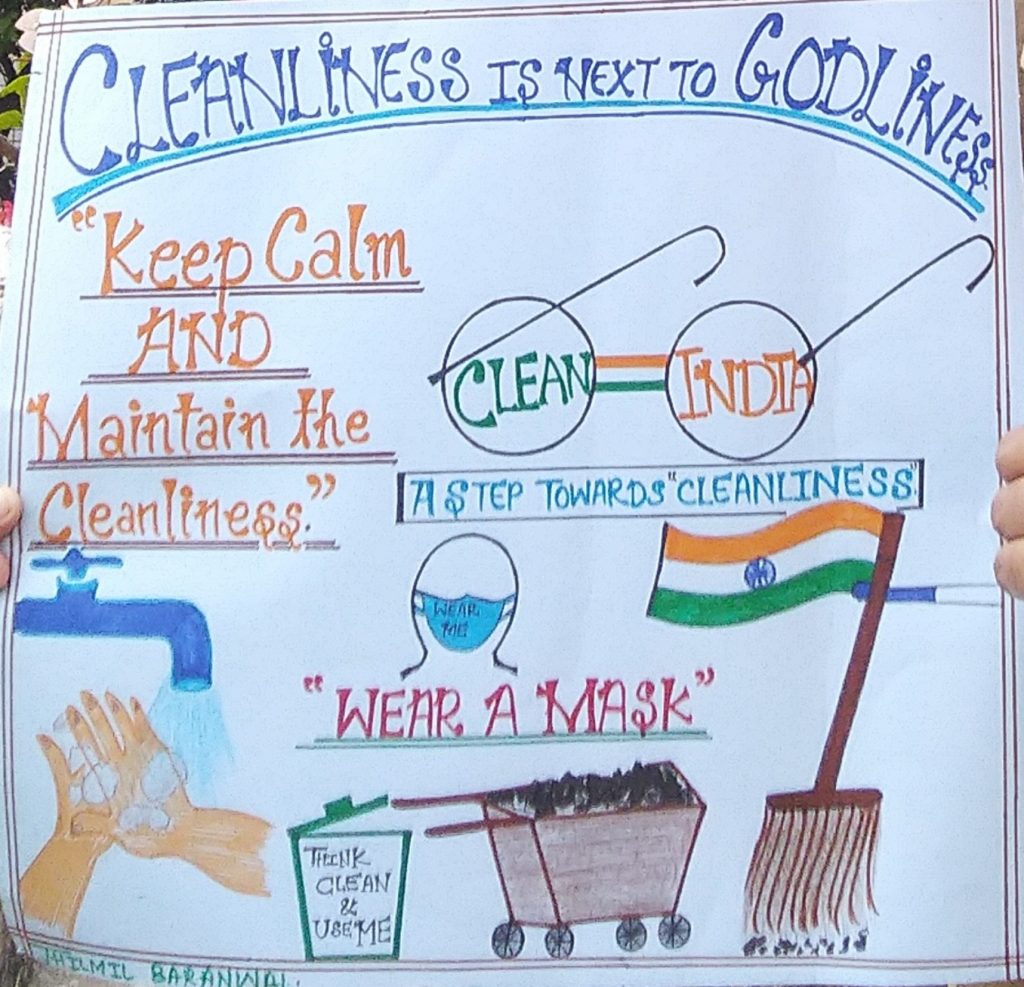 CLEANLINESS IS NEXT TO GODLINESS
"Keep Calm
AND
Maintain the
Cleanliness."
CLEAN INDIA
A STEP TOWARDS "CLEANLINESS"
WEAR
ME
"WEAR A MASK"
THINK
CLEAN
&
USE ME
BARANWAL.